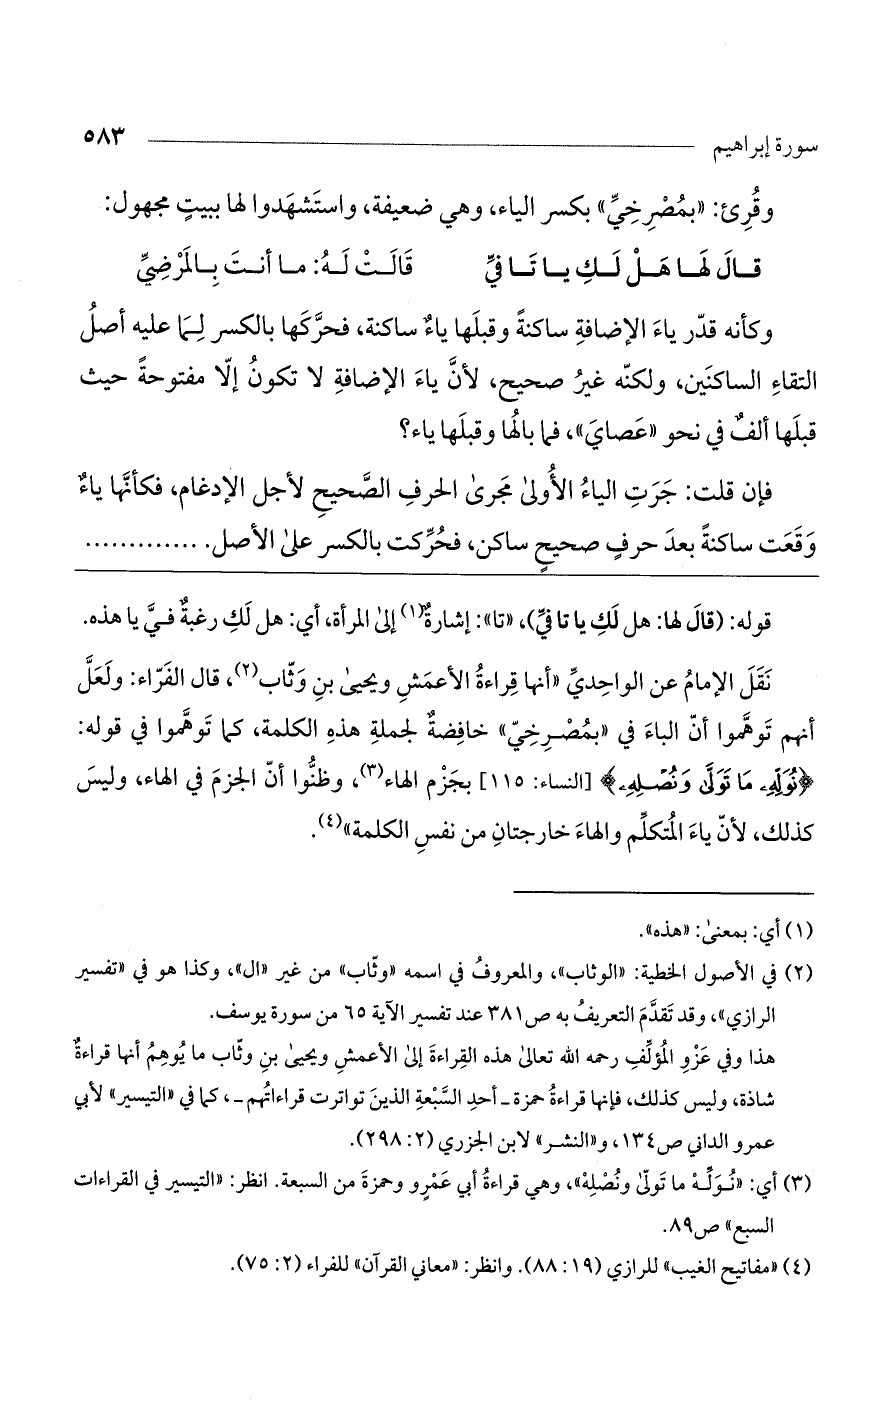 سورة إبراهيم ٥٨٣
وقُرِئ: «بمُصْرِخِيِّ» بكسر الياء، وهي ضعيفة، واستَشهَدوا لها ببيتٍ مجهول:
قـالَ لَهـا هَـلْ لَـكِ يـا تَـا فيِّ قَالَـتْ لَـهُ: مـا أنـتَ بِـالمَرْضِيِّ
وكأنه قدّر ياءَ الإضافةِ ساكنةً وقبلَها ياءٌ ساكنة، فحرَّكَها بالكسر لِـمَا عليه أصلُ
التقاءِ الساكنَين، ولكنّه غيرُ صحيح، لأنَّ ياءَ الإضافةِ لا تكونُ إلّا مفتوحةً حيث
قبلَها ألفٌ في نحو «عَصايَ»، فما بالُها وقبلَها ياء؟
فإن قلت: جَرَتِ الياءُ الأُولىٰ مَجرىٰ الحرفِ الصَّحيحِ لأجل الإدغام، فكأنَّها ياءٌ
وَقَعَت ساكنةً بعدَ حرفٍ صحيحٍ ساكن، فحُرِّكت بالكسر علىٰ الأصل. .............
قوله: (قالَ لها: هل لَكِ يا تا فيِّ)، «تا»: إشارةٌ(١) إلىٰ المرأة، أي: هل لَكِ رغبةٌ فـيَّ يا هذه.
نَقَلَ الإمامُ عن الواحِديِّ «أنها قِراءةُ الأعمَشِ ويحيىٰ بنِ وَثّاب(٢)، قال الفَرّاء: ولَعَلَّ
أنهم تَوهَّموا أنّ الباءَ في «بمُصْـرِخِيّ» خافِضةٌ لجملةِ هذهِ الكلمة، كما تَوهَّموا في قوله:
﴿نُوَلِّهِۦ مَا تَوَلَّىٰ وَنُصْـلِهِۦ﴾ [النساء: ١١٥] بجَزْم الهاء(٣)، وظنُّوا أنّ الجزمَ في الهاء، وليسَ
كذلك، لأنّ ياءَ المُتكلِّم والهاءَ خارجتانِ من نفسِ الكلمة»(٤).
(١) أي: بمعنىٰ: «هذه».
(٢) في الأصول الخطية: «الوثاب»، والمعروفُ في اسمه «وثّاب» من غير «ال»، وكذا هو في «تفسير
الرازي»، وقد تَقدَّمَ التعريفُ به ص٣٨١ عند تفسير الآية ٦٥ من سورة يوسف.
هذا وفي عَزْوِ المُؤلِّفِ رحمه الله تعالىٰ هذه القِراءةَ إلىٰ الأعمشِ ويحيىٰ بنِ وثّاب ما يُوهِمُ أنها قراءةٌ
شاذة، وليس كذلك، فإنها قراءةُ حمزة ـ أحدِ السَّبْعةِ الذينَ تواترت قراءاتُهم ـ، كما في «التيسير» لأبي
عمرو الداني ص١٣٤، و«النشـر» لابن الجزري (٢: ٢٩٨).
(٣) أي: «نُـوَلِّـهْ ما تَولّىٰ ونُصْلِهْ»، وهي قراءةُ أبي عَمْرٍو وحمزةَ من السبعة. انظر: «التيسير في القراءات
السبع» ص٨٩.
(٤) «مفاتيح الغيب» للرازي (١٩: ٨٨). وانظر: «معاني القرآن» للفراء (٢: ٧٥).